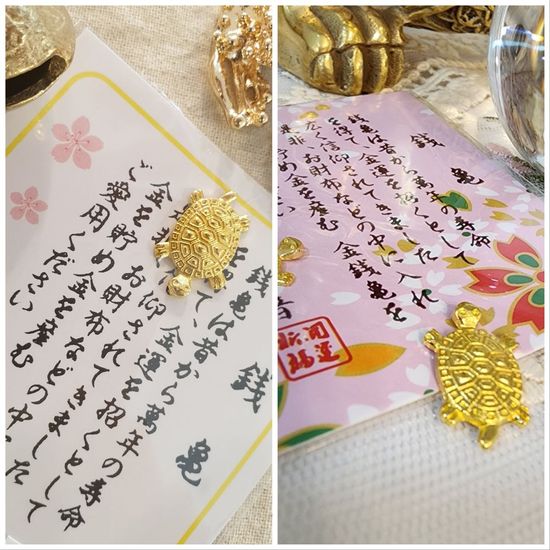 銭亀
銭亀は昔から萬年の寿命
て、金運を招くとして
仰されてきました
お財布などの中
金を貯め金を産む
ご愛用ください
銭亀
銭亀は昔から萬年の寿命
を得て、金運を招くとして
広く信仰されてきました
是非、お財布などの中に入れ
貯め金を産む金銭亀を
開運
招福